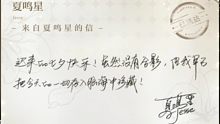 夏鸣星
Jesse
来自夏鸣星的信
这年的七夕快乐！虽然没有合影，但我早已
把今天的一切存入脑海中珍藏！
夏鸣星
Jesse